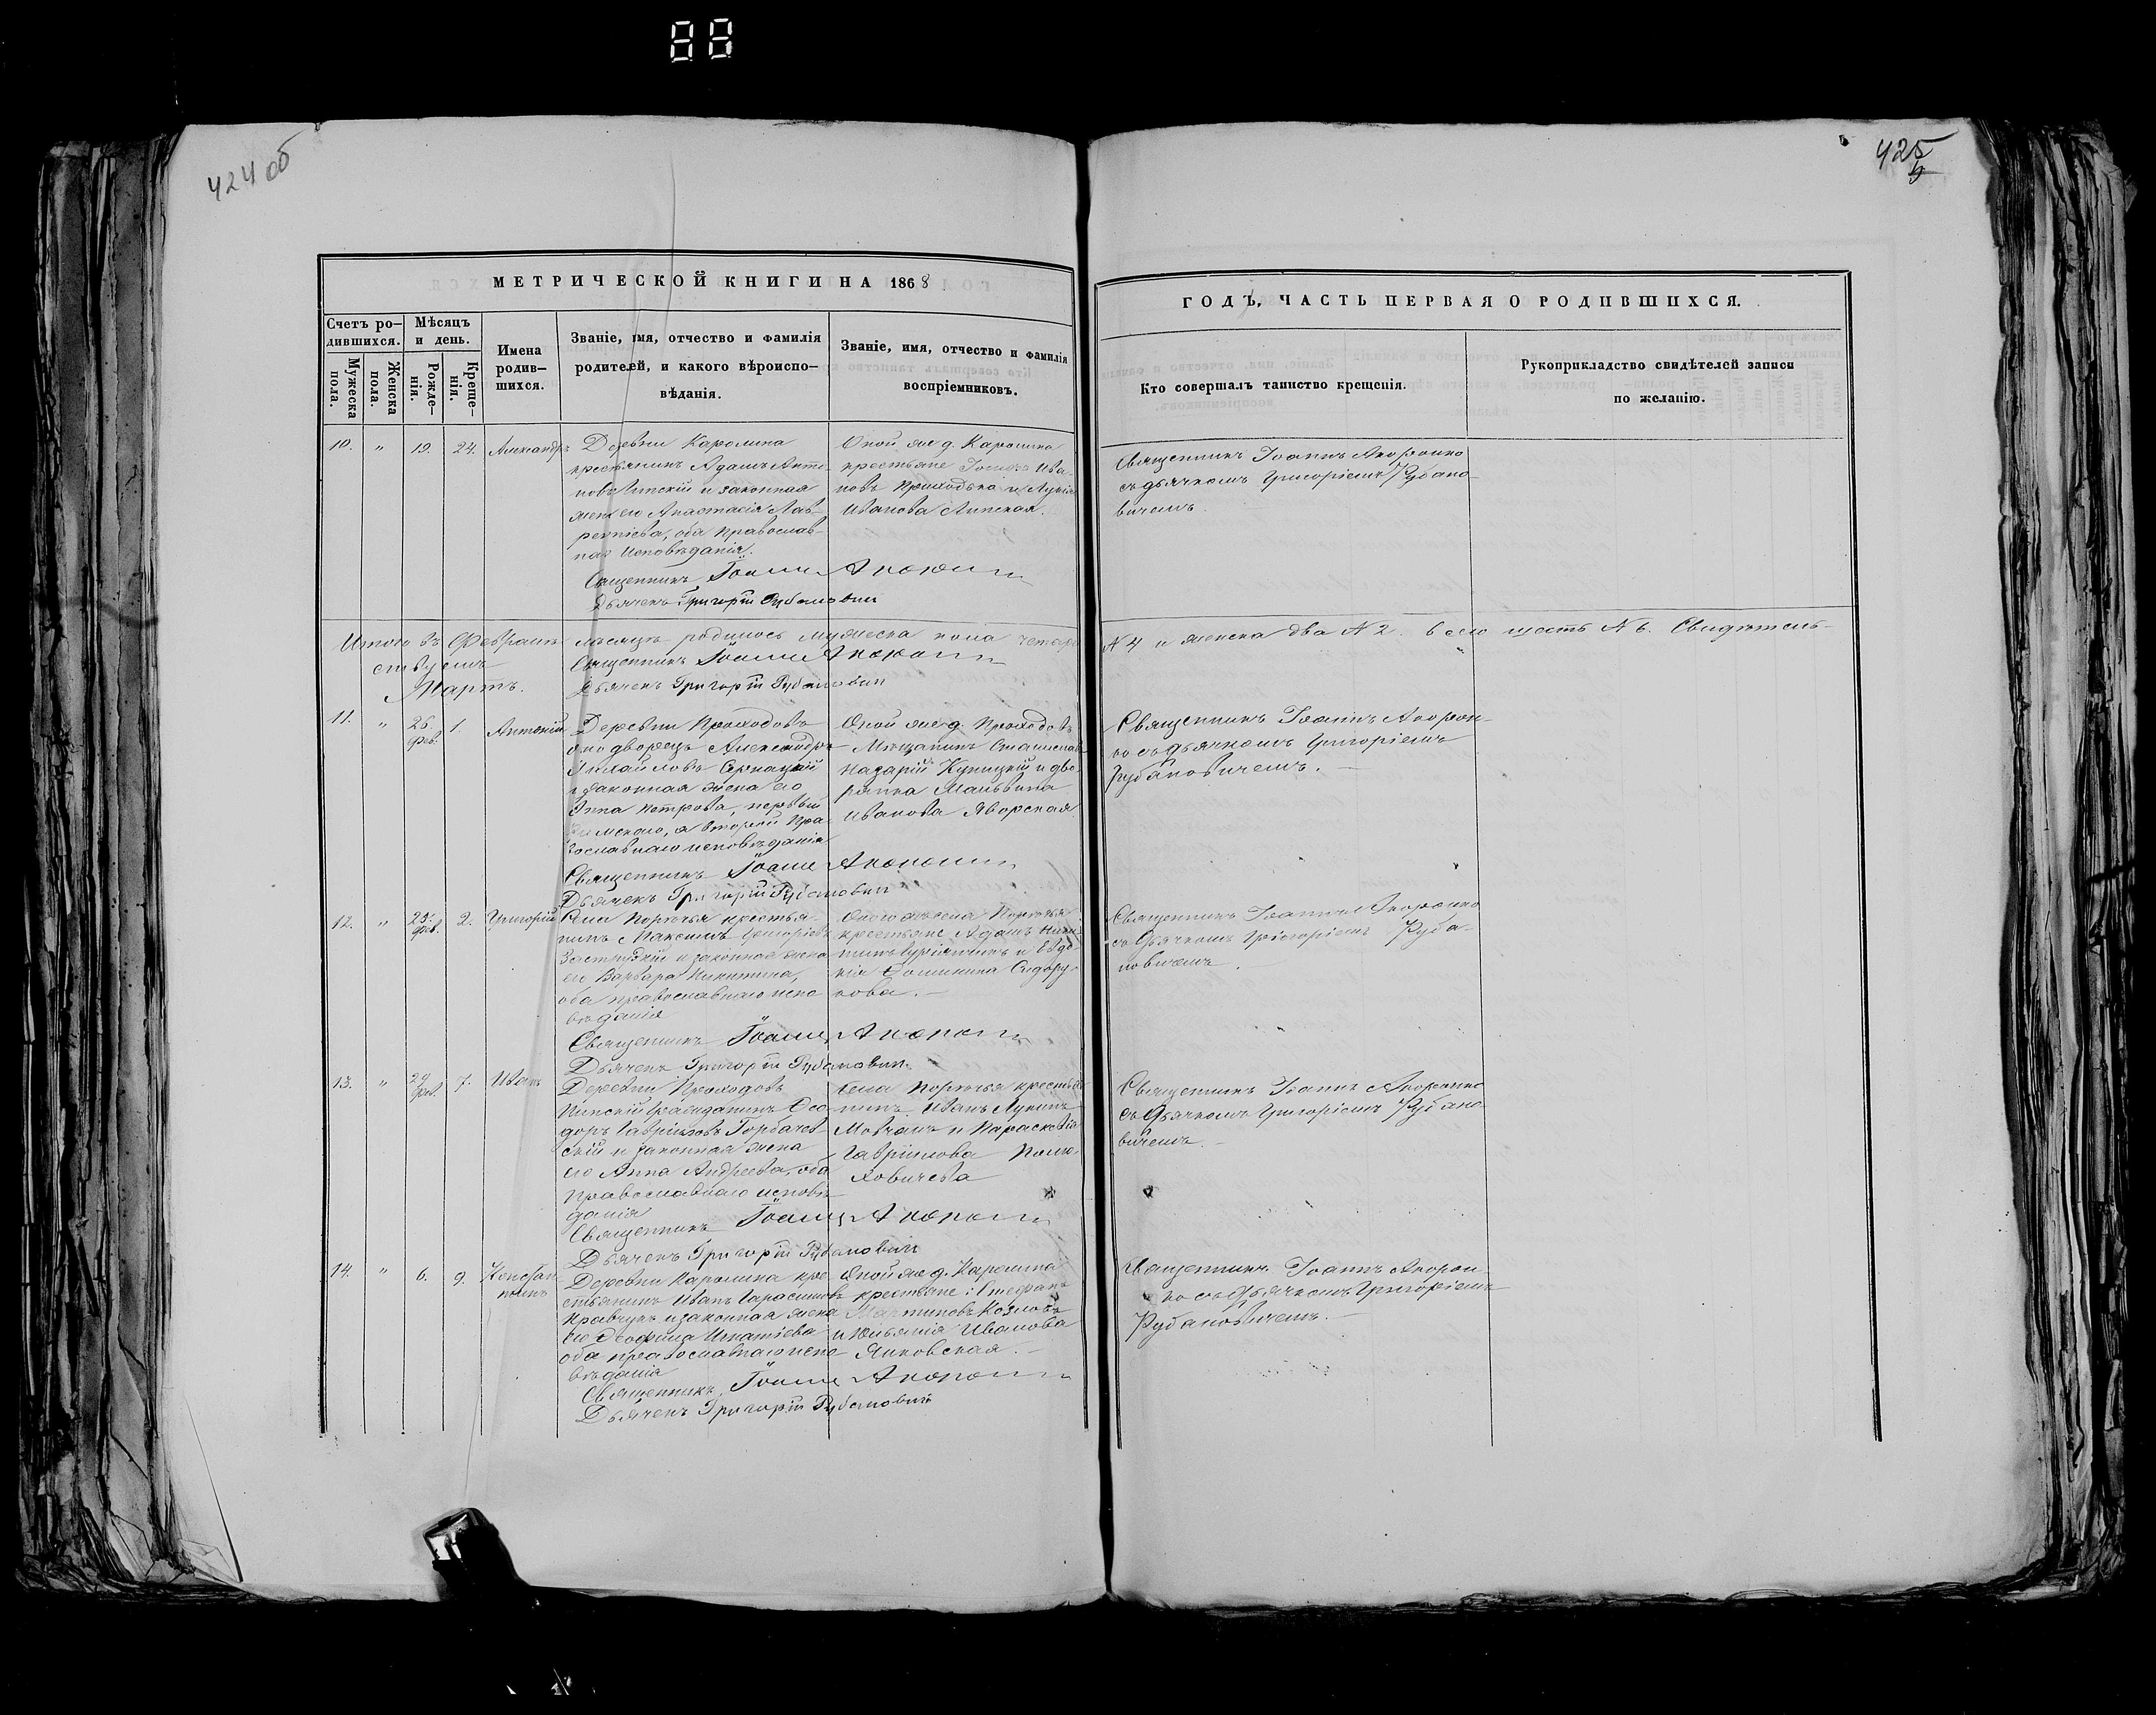 88
424 об
425
МЕТРИЧЕСКОЙ КНИГИ НА 1868
ГОДЪ, ЧАСТЬ ПЕРВАЯ О РОДИВШИХСЯ.
Счетъ ро-
дившихся.
Мужеска
пола.
Женска
пола.
Мѣсяцъ
и день.
Рожде-
нія.
Креще-
нія.
Имена
родив-
шихся.
Званіе, имя, отчество и фамилія
родителей, и какого вѣроиспо-
вѣданія.
Званіе, имя, отчество и фамилія
воспріемниковъ.
Кто совершалъ таинство крещенія.
Рукоприкладство свидѣтелей записи
по желанію.
10. " 19. 24. Александръ
Деревни Каролина
крестьянинъ Адамъ Анто-
новъ Липскій и законная
жена его Анастасія Лав-
рентіева, оба православ-
наго исповѣданія.
Священникъ Іоаннъ
Дьячекъ Григорій Рубановичъ
Оной же д. Каролина
крестьяне Ива-
новъ Приходько и
Иванова Липская.
Священникъ Іоаннъ
съ дьячкомъ Григоріемъ Рубано-
вичемъ.
Итого въ Февралѣ мѣсяцѣ родилось мужеска пола четыре
№ 4 и женска два № 2. всего шесть № 6. Свидѣтель-
ствуемъ
Священникъ Іоаннъ
Дьячекъ Григорій Рубановичъ
Мартъ.
11. " 26 Фев. 1. Антоній
Деревни Приходовъ
однодворецъ Александръ
Михайловъ
и законная жена его
Анна Петрова, первый
Римскаго, а вторая пра-
вославнаго исповѣданія
Священникъ Іоаннъ
Дьячекъ Григорій Рубановичъ
Оной же д. Приходовъ
Мѣщанинъ Станиславъ
Назарій Куницкій и дво-
рянка Мальвина
Иванова Яворская
Священникъ Іоаннъ
съ дьячкомъ Григоріемъ
Рубановичемъ.
12. " Фев. 2. Григорій
Села Порѣчья крестья-
нинъ Максимъ Григорьевъ
и законная жена
его Варвара Никитина,
оба православнаго испо-
вѣданія
Священникъ Іоаннъ
Дьячекъ Григорій Рубановичъ
Онаго же села Порѣчья
крестьяне Адамъ
и Евдо-
кія Сидору-
кова.
Священникъ Іоаннъ
съ дьячкомъ Григоріемъ Руба-
новичемъ.
13. " Фев. 7. Иванъ
Деревни Приходовъ
Пинскій гражданинъ Ѳео-
доръ Гавріиловъ Горбачев-
скій и законная жена
его Анна Андреева, оба
православнаго исповѣ-
данія
Священникъ Іоаннъ
Дьячекъ Григорій Рубановичъ
Села Порѣчья крестья-
нинъ Иванъ Лукинъ
Мовчанъ и Параскевія
Гавріилова
Священникъ Іоаннъ
съ дьячкомъ Григоріемъ Рубано-
вичемъ.
14. " 6. 9. Констан-
тинъ
Деревни Каролина кре-
стьянинъ Иванъ Герасимовъ
Кравчукъ и законная жена
его Игнатіева
оба православнаго испо-
вѣданія
Священникъ Іоаннъ
Дьячекъ Григорій Рубановичъ
Оной же д. Каролина
крестьяне: Стефанъ
Мартиновъ Козловъ
и Юліанія Иванова
Янковская.
Священникъ Іоаннъ
съ дьячкомъ Григоріемъ
Рубановичемъ.